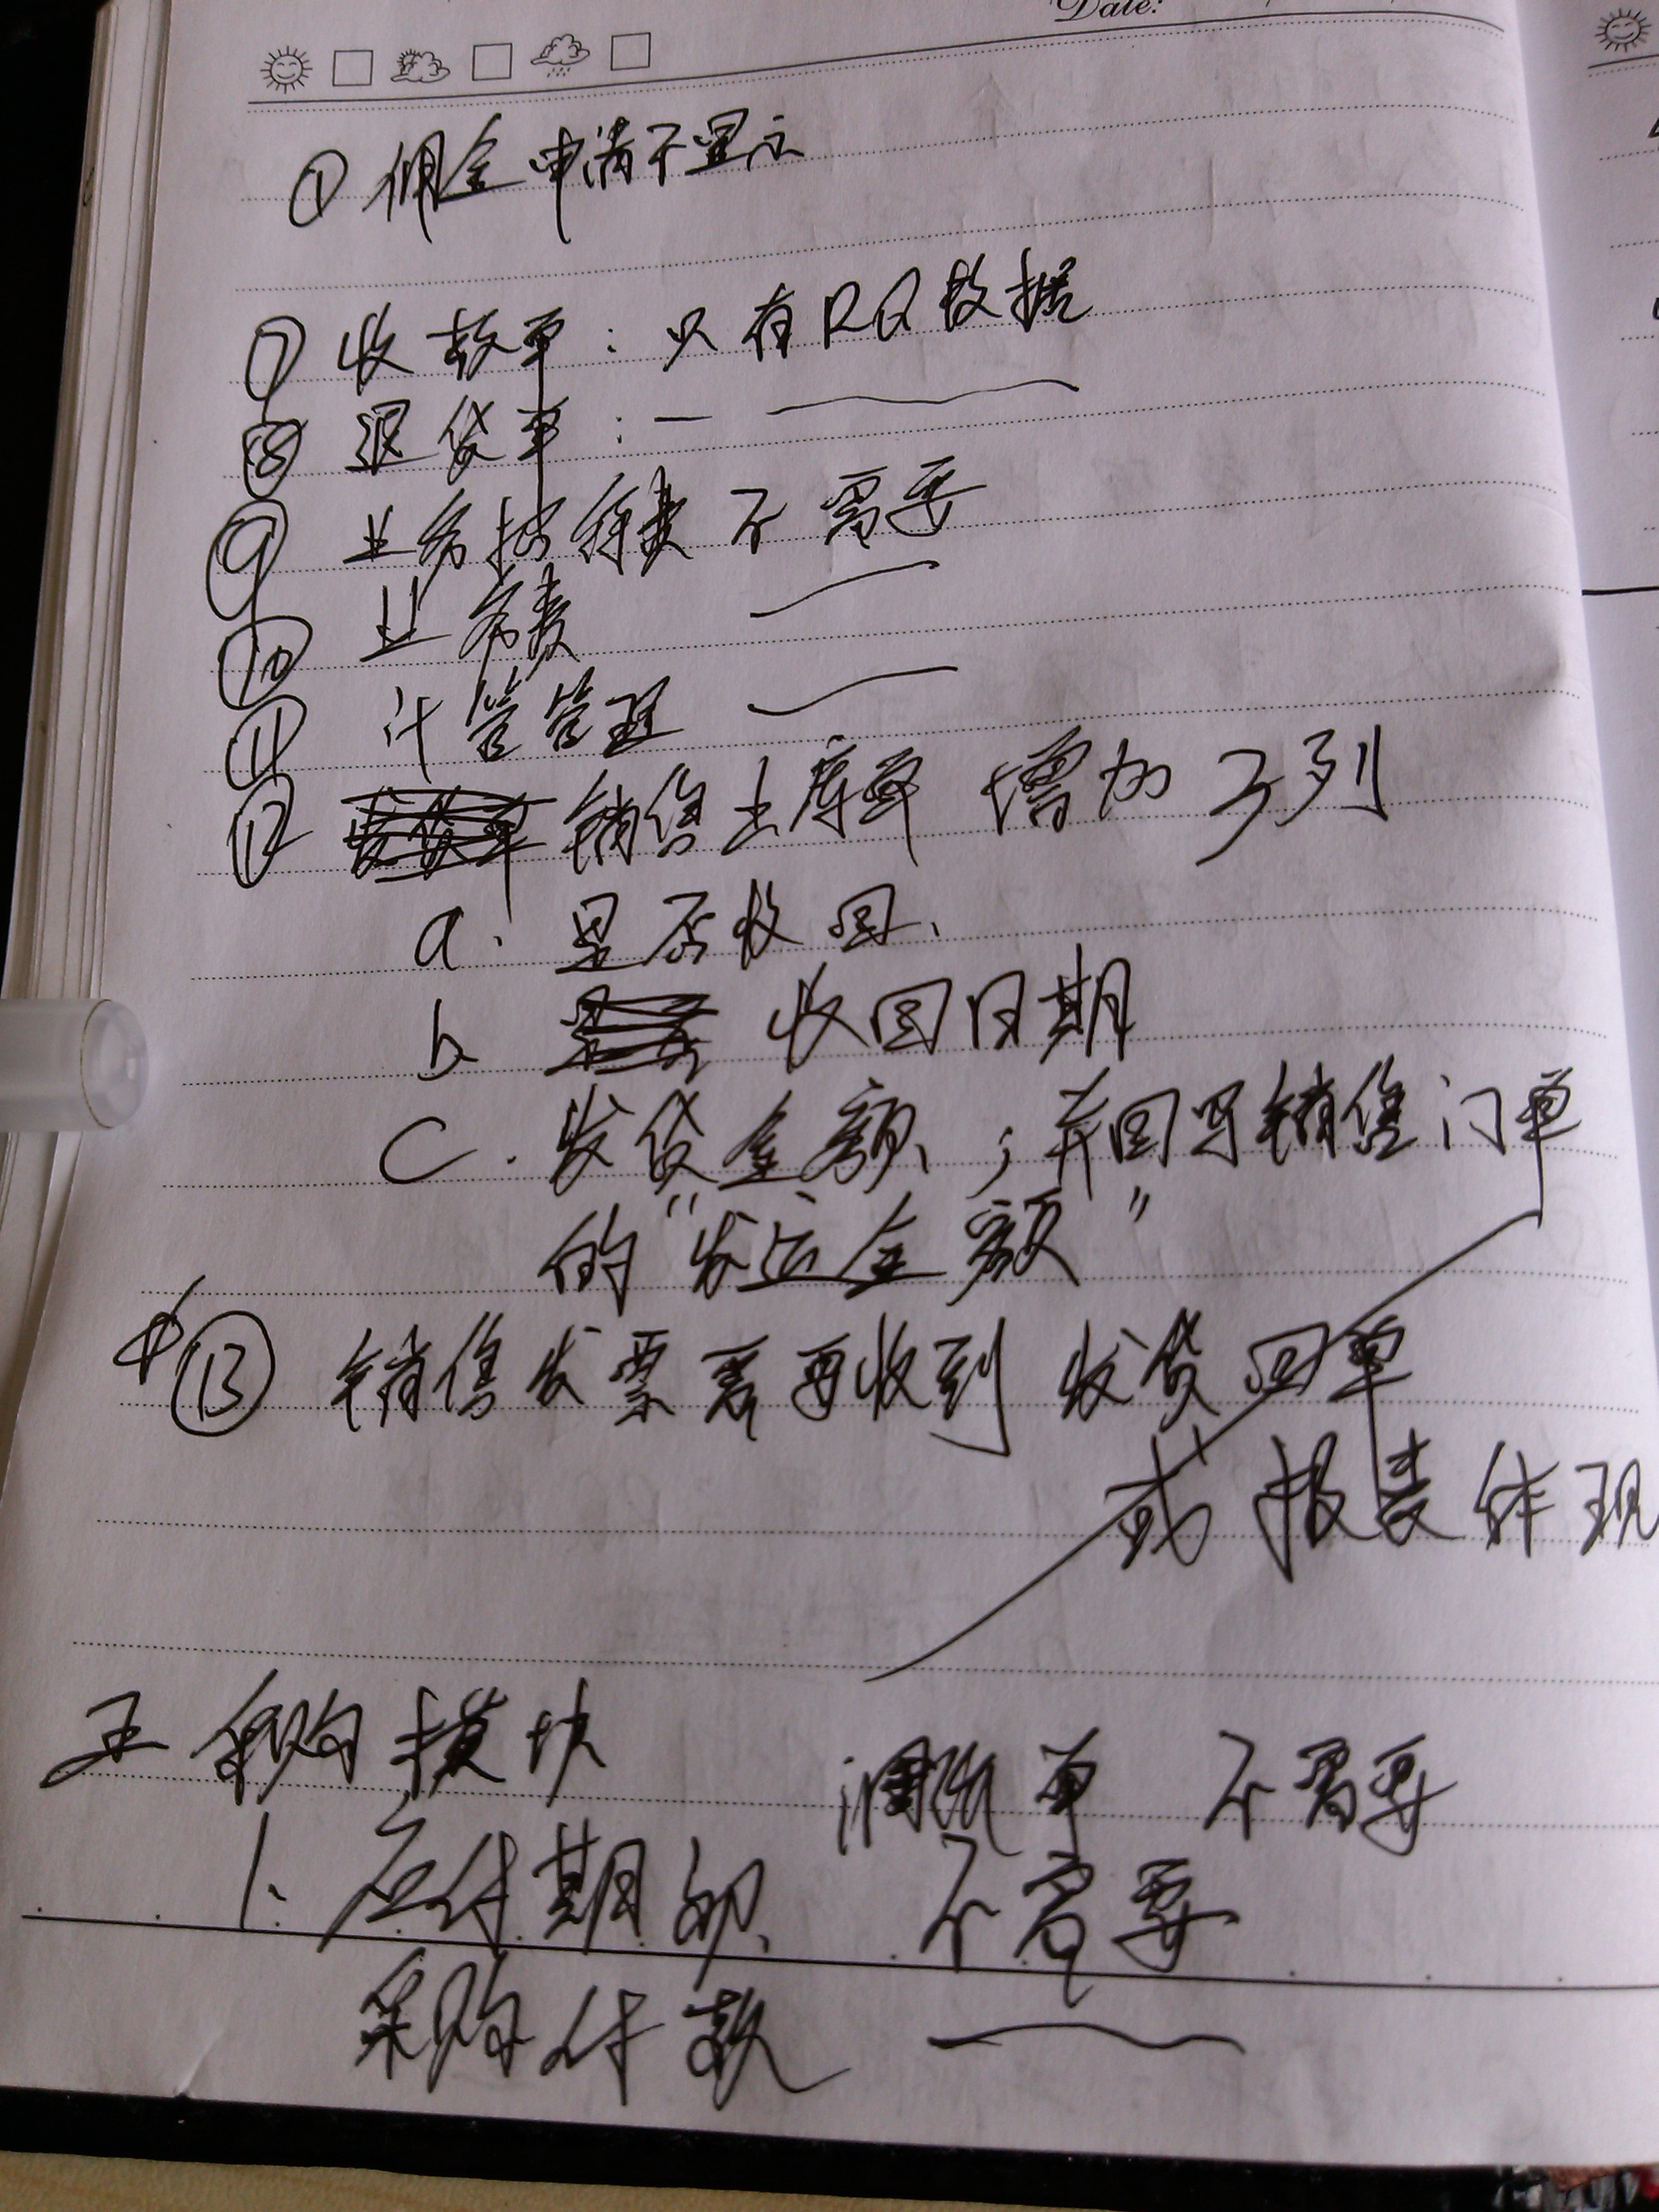 Date:
① 佣金申请不显示
⑦ 收款单：只有RQ数据
⑧ 退货单：一
⑨ 业务招待费不需要
⑩ 业务费
⑪ 计管管理
⑫ 销售出库单 增加3列
a. 是否收回、
b 收回日期
c. 发货金额、；并回写销售订单
的“发运金额”
⑬ 销售发票需要收到 收货回单
或 报表体现
五 采购模块
调拨单 不需要
1、应付期初、 不需要
采购付款